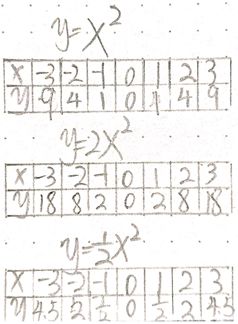 y=x²
x -3 -2 -1 0 1 2 3
y 9 4 1 0 1 4 9
y=2x²
x -3 -2 -1 0 1 2 3
y 18 8 2 0 2 8 18
y=½x²
x -3 -2 -1 0 1 2 3
y 4.5 2 ½ 0 ½ 2 4.5